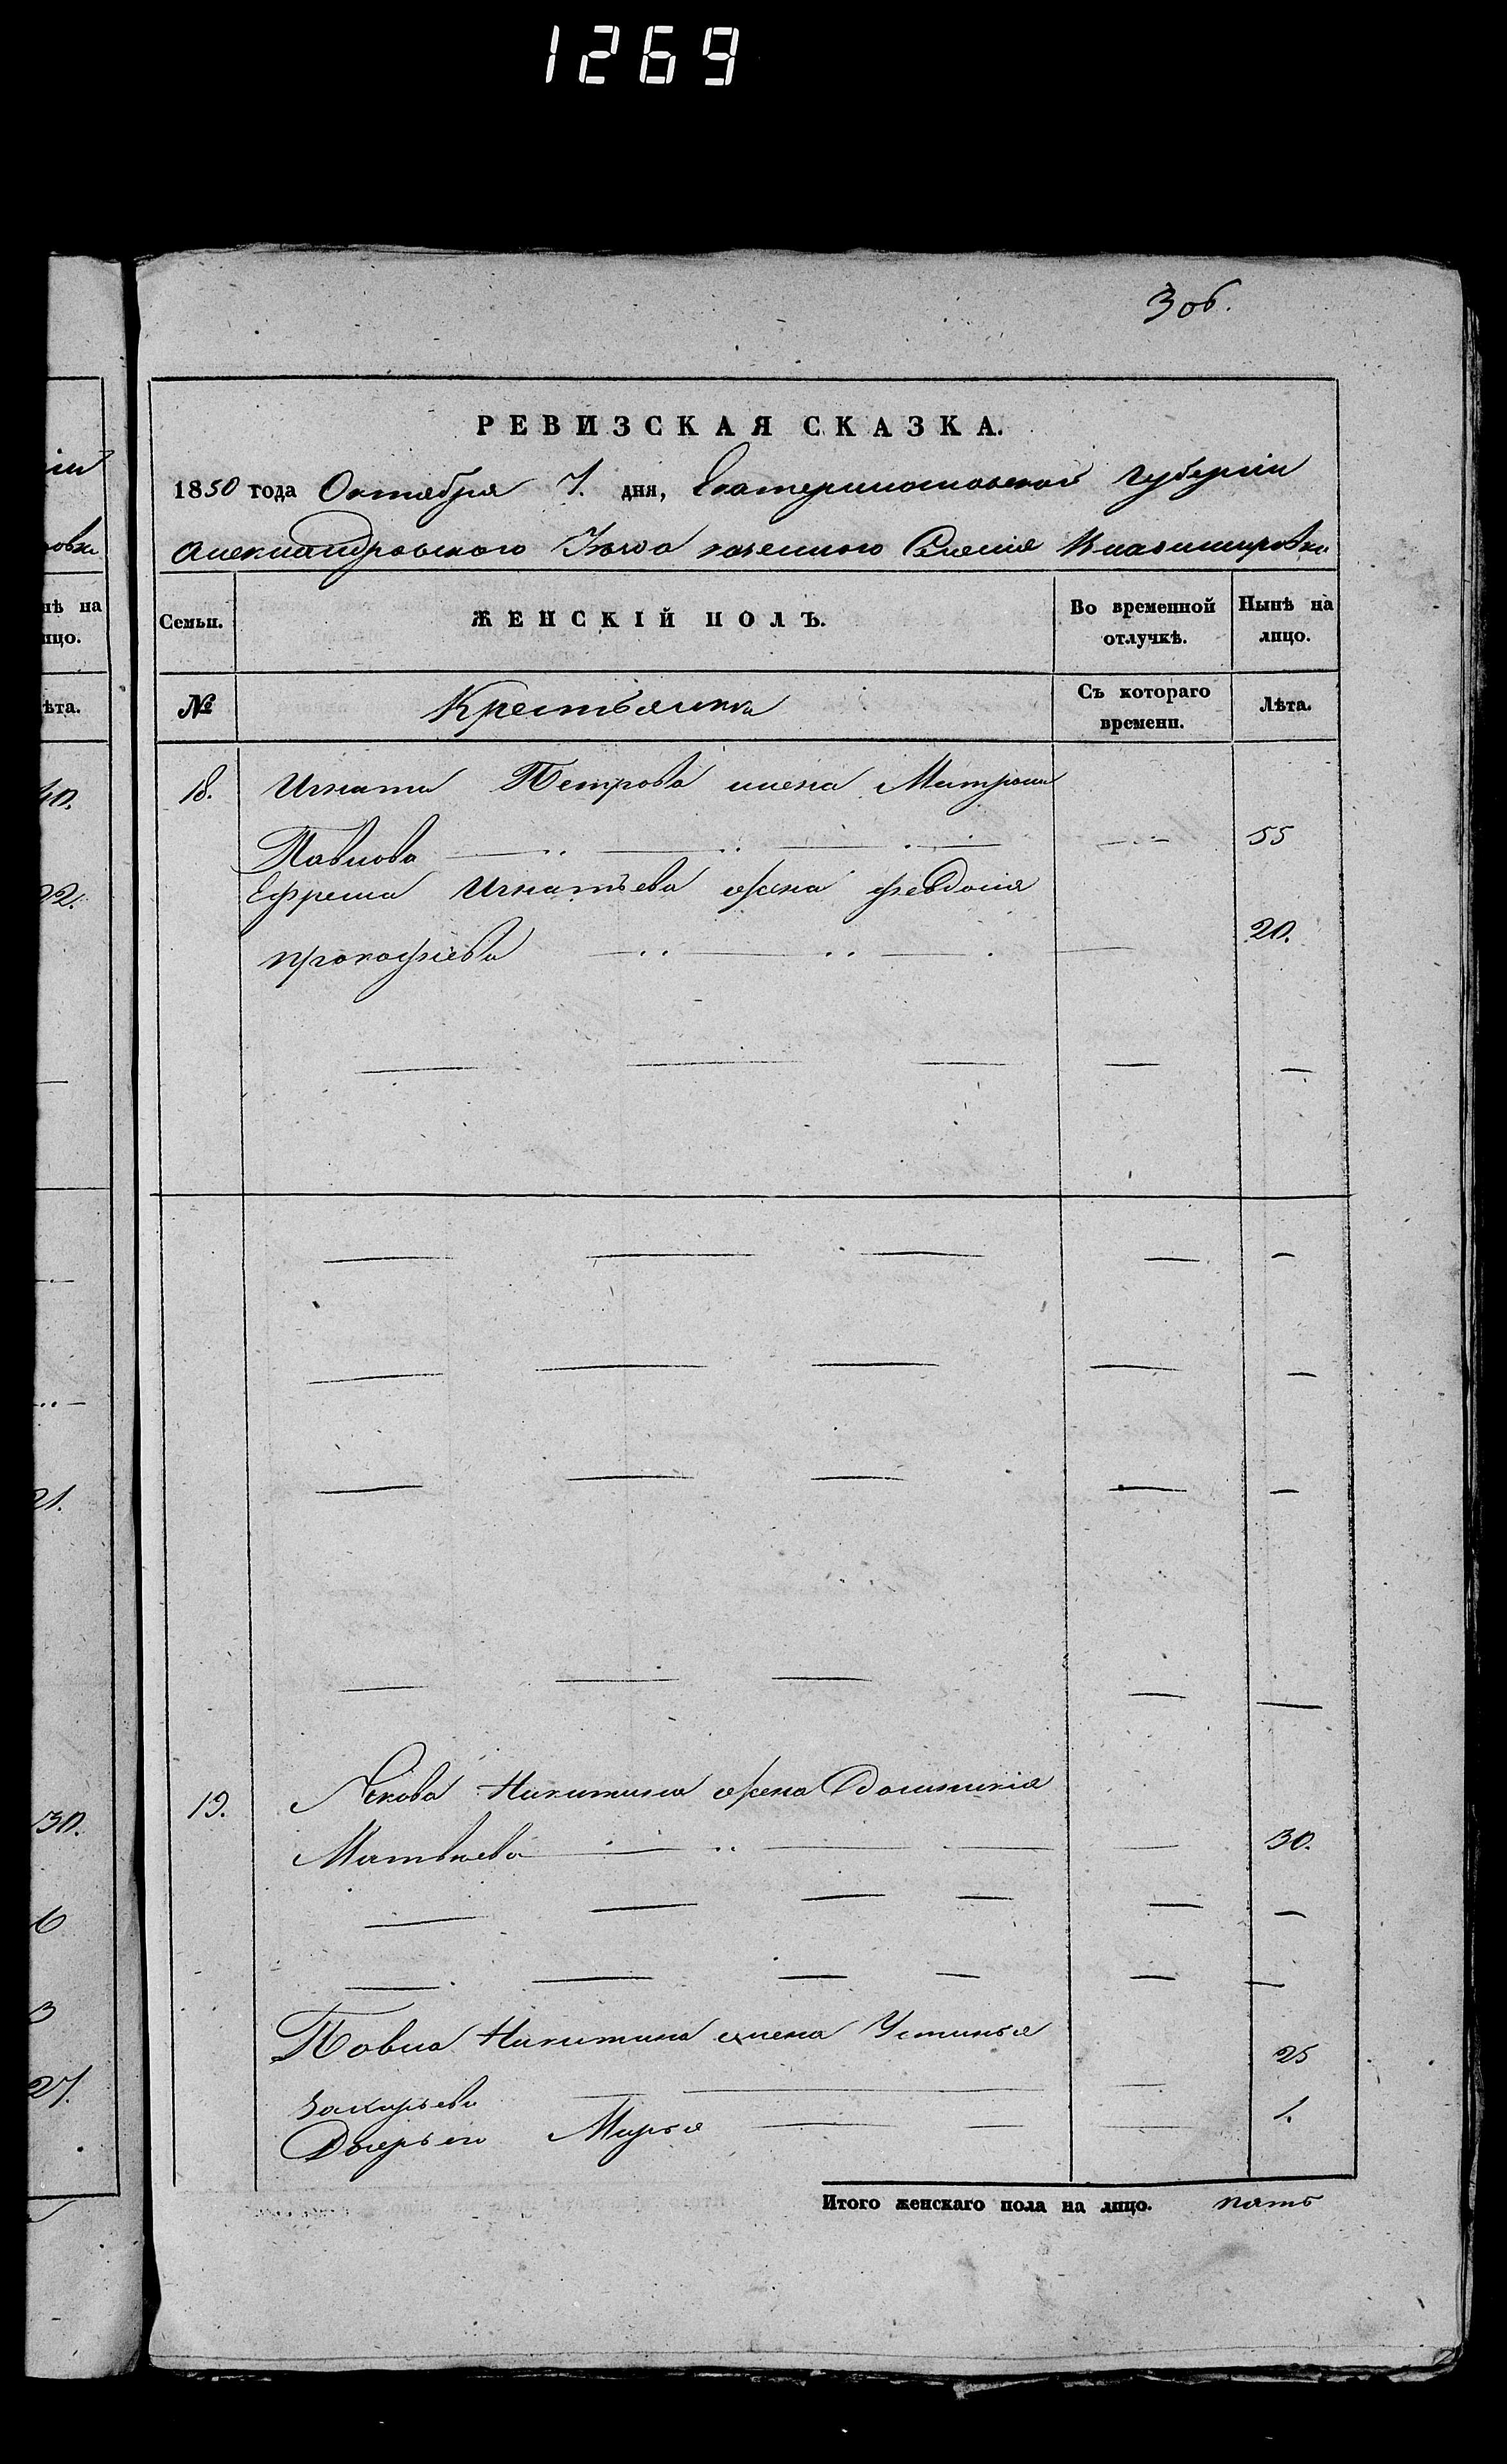 1269
3 об.
РЕВИЗСКАЯ СКАЗКА.
1850 года Октября 7. дня, Екатеринославской Губерніи
Александровского казенного Селенія Владимировки
Семьи.
ЖЕНСКІЙ ПОЛЪ.
Во временной отлучкѣ.
Нынѣ на лицо.
№
Крестьянки
Съ котораго времени.
Лѣта.
18. Игната Петрова жена Матрона
Павлова 55
Ефрема Игнатьева жена Февдосия
Прокофіева 20.
19. Якова Никитина жена Домникія
Матвѣева 30.
Павла Никитина жена Устинья
Захарьева 25
Дочерь его Марья 1.
Итого женскаго пола на лицо. пять
нѣ на
ицо.
ѣта.
40.
22.
21.
30.
6
3
27.